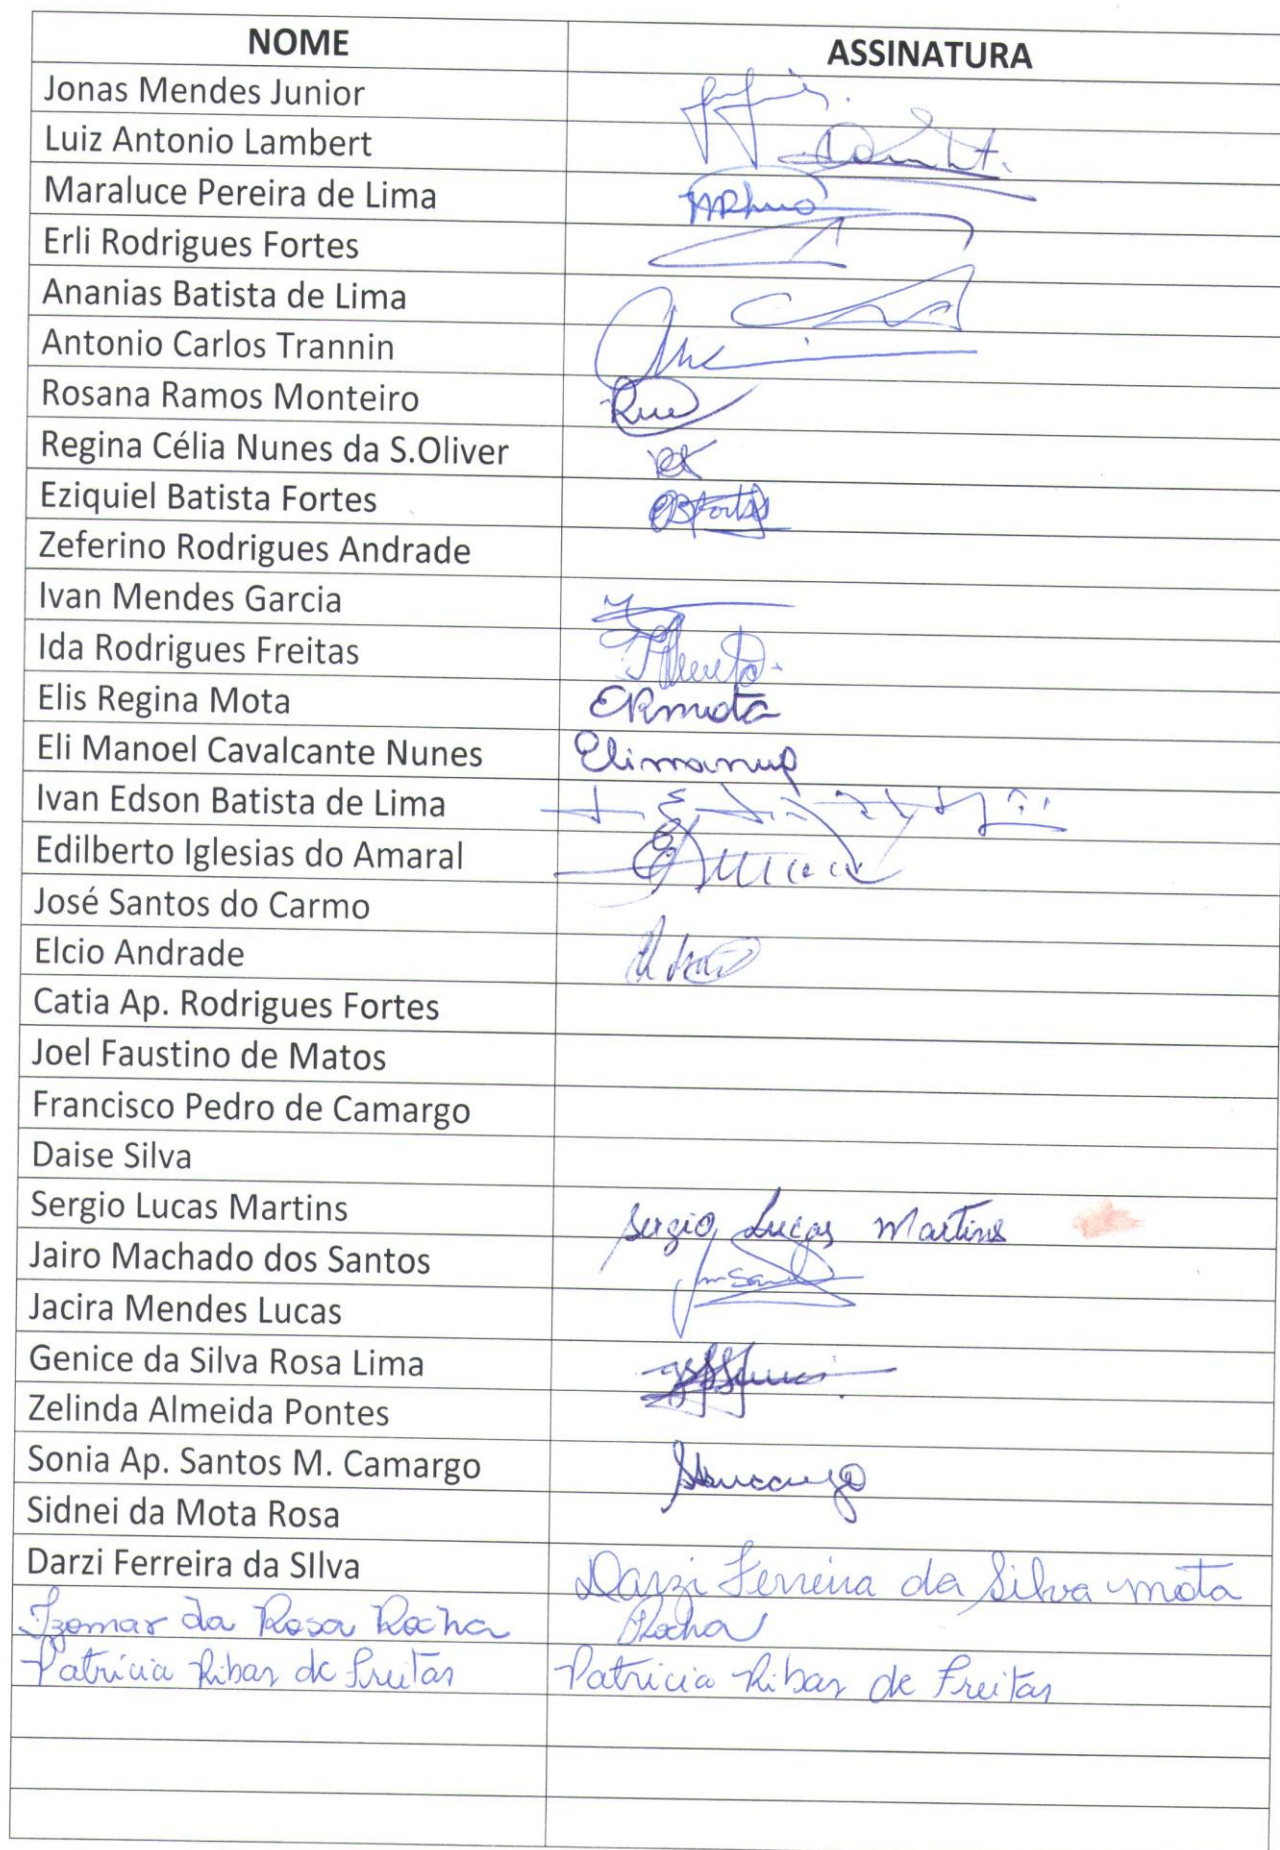 NOME ASSINATURA
Jonas Mendes Junior
Luiz Antonio Lambert
Maraluce Pereira de Lima
Erli Rodrigues Fortes
Ananias Batista de Lima
Antonio Carlos Trannin
Rosana Ramos Monteiro
Regina Célia Nunes da S.Oliver
Eziquiel Batista Fortes
Zeferino Rodrigues Andrade
Ivan Mendes Garcia
Ida Rodrigues Freitas
Elis Regina Mota ERmota
Eli Manoel Cavalcante Nunes Elimanuel
Ivan Edson Batista de Lima
Edilberto Iglesias do Amaral
José Santos do Carmo
Elcio Andrade
Catia Ap. Rodrigues Fortes
Joel Faustino de Matos
Francisco Pedro de Camargo
Daise Silva
Sergio Lucas Martins Sergio Lucas Martins
Jairo Machado dos Santos
Jacira Mendes Lucas
Genice da Silva Rosa Lima
Zelinda Almeida Pontes
Sonia Ap. Santos M. Camargo
Sidnei da Mota Rosa
Darzi Ferreira da SIlva Darzi Ferreira da Silva mota
Izomar da Rosa Rocha Rocha
Patricia Ribas de Freitas Patricia Ribas de Freitas